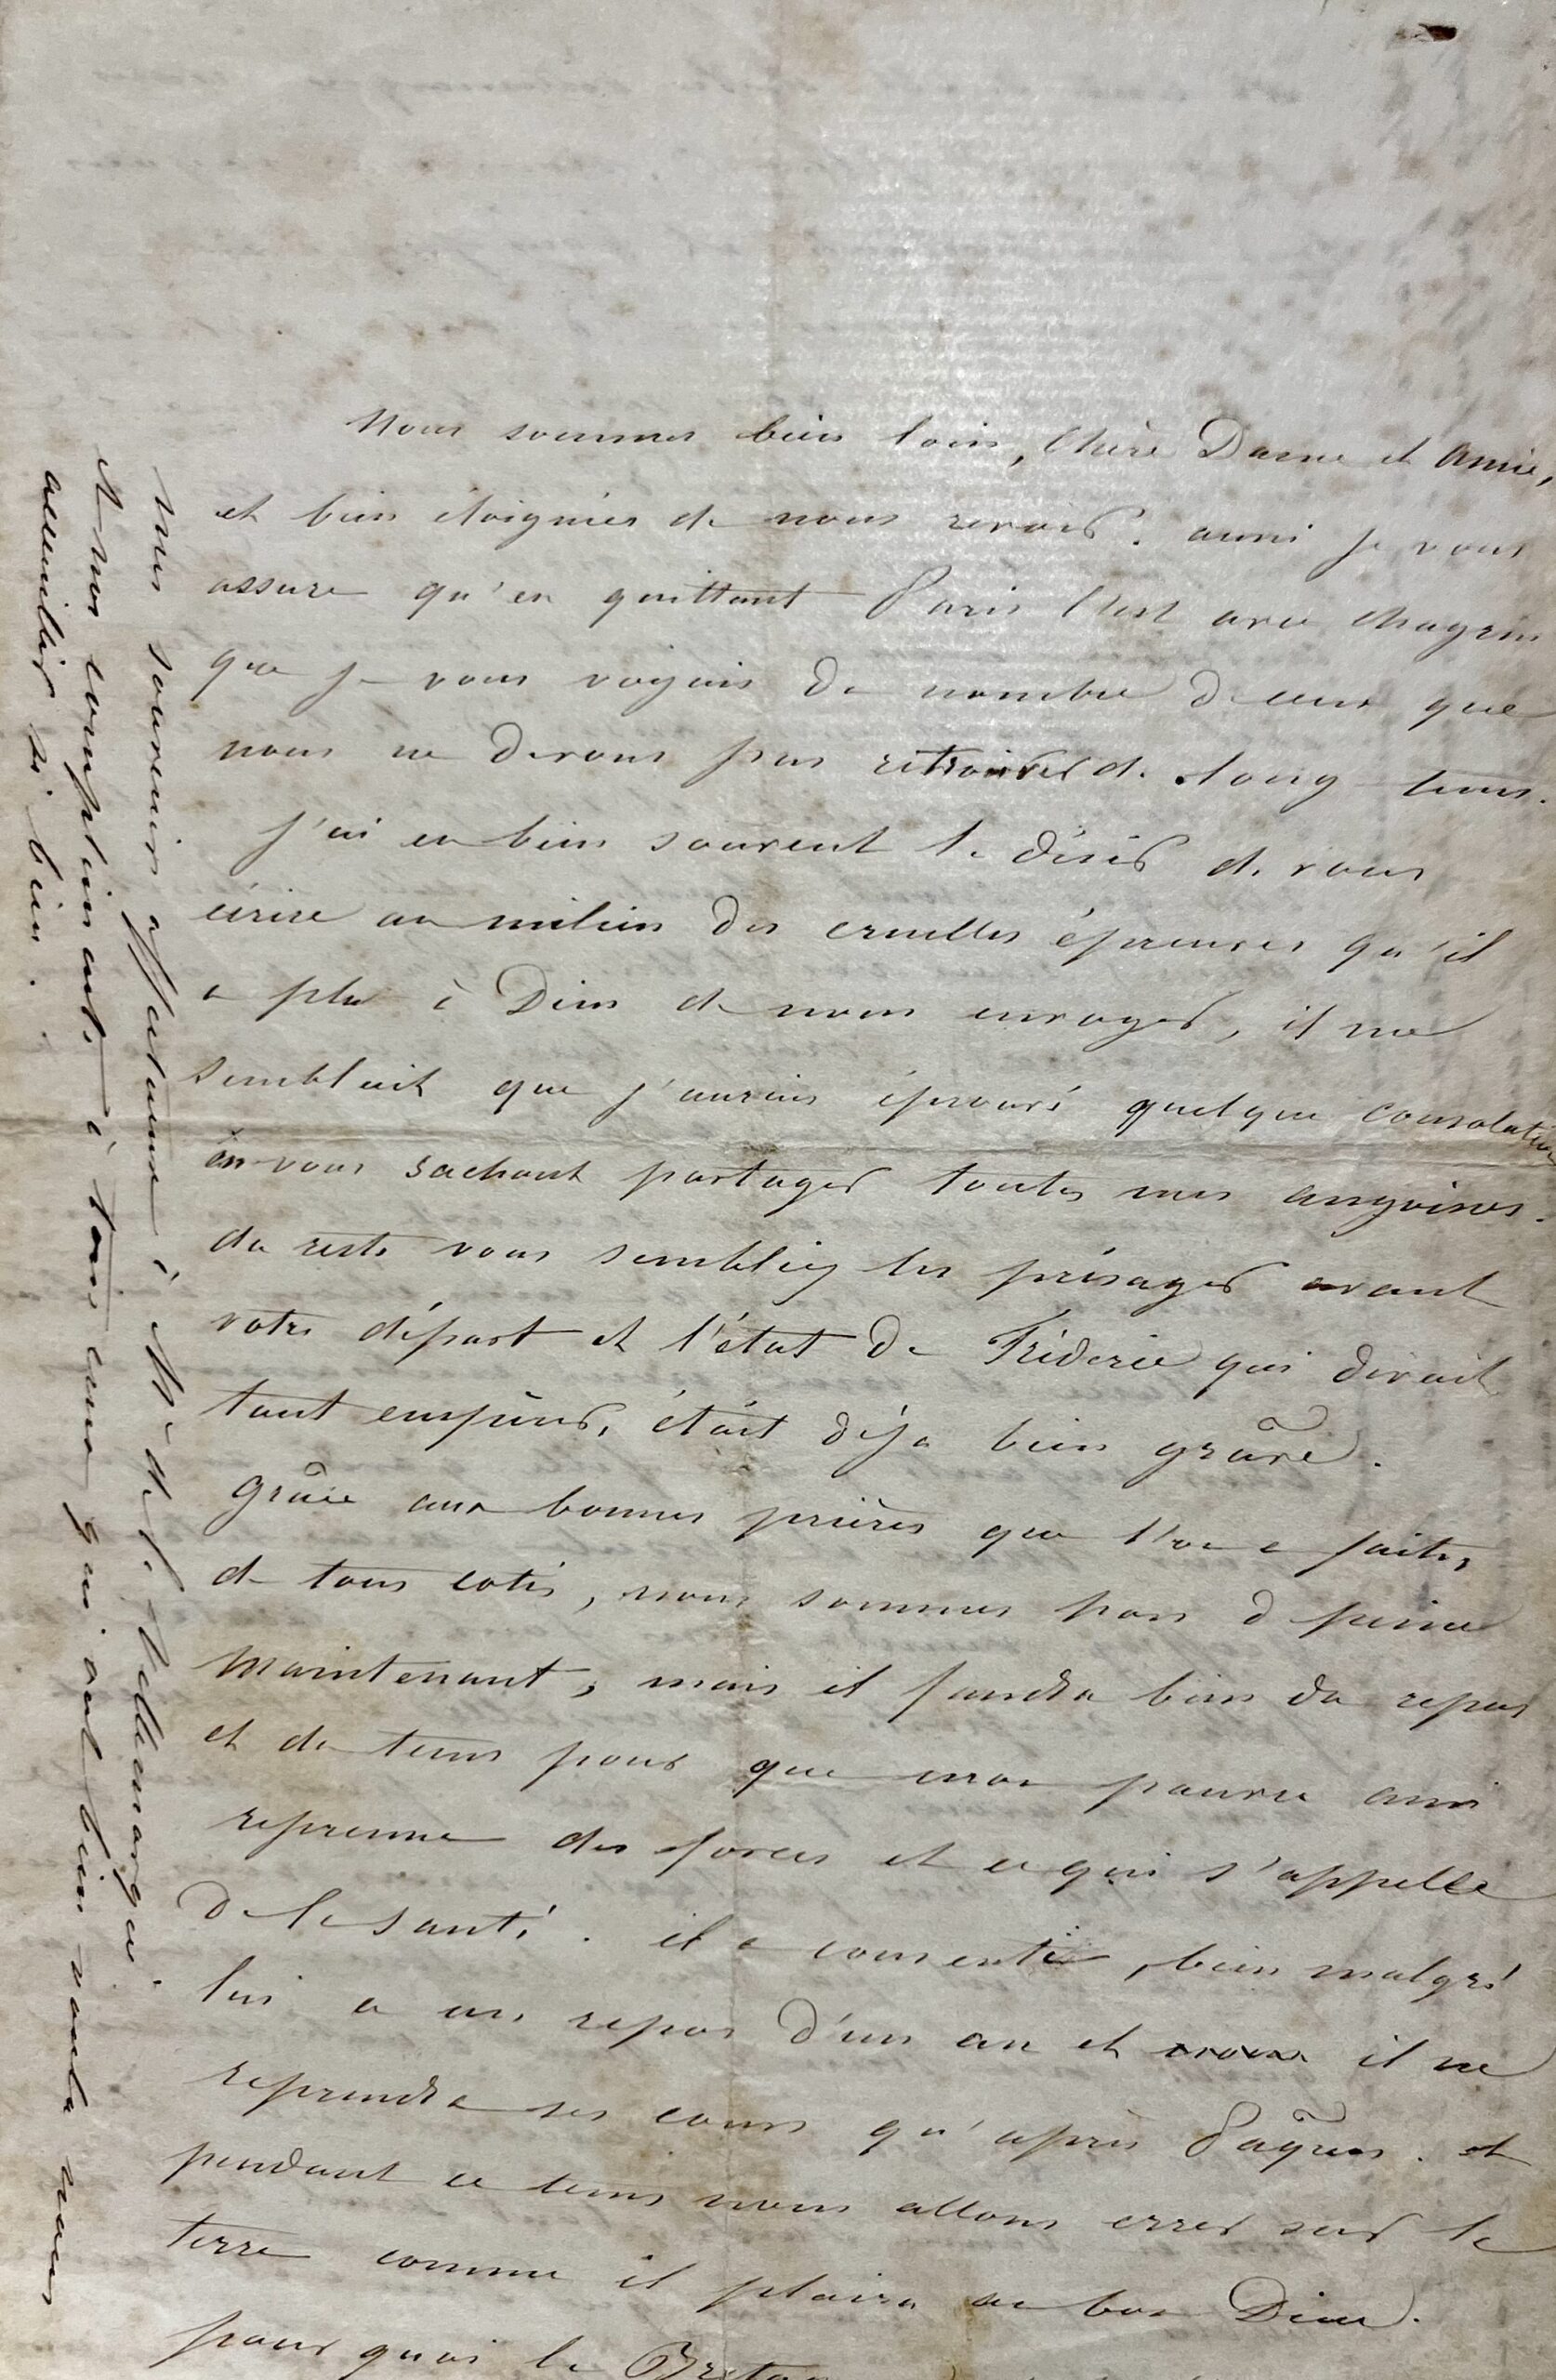 Nous sommes bien loin, chère Dame et amie,
et bien éloignés de nous revoir. aussi je vous
assure qu'en quittant Paris c'est avec chagrin
que je vous voyais du nombre de ceux que
nous ne devons pas retrouver de long tems.
j'ai eu bien souvent le désir de vous
écrire au milieu des cruelles épreuves qu'il
a plu à Dieu de nous envoyer, il me
semblait que j'aurais éprouvé quelque consolation
en vous sachant partager toutes mes angoisses.
du reste vous sembliez les présager avant
votre départ et l'état de Fréderic qui devait
tant empirer, était déja bien grâve.
grâce aux bonnes prières que l'on a faites
de tous cotés, nous sommes hors de peine
maintenant, mais il faudra bien du repos
et du tems pour que mon pauvre ami
reprenne des forces et ce qui s'appelle
de la santé. il a consenti, bien malgré
lui a un repos d'un an et il ne
reprendra ses cours qu'après Pâques. et
pendant ce tems nous allons errer sur la
terre comme il plaira au bon Dieu.
pourquoi la
mes souvenirs affectueux à Mr de la Villemarqué
et nos complimens à tous ceux qui ont bien voulu nous
accueillir si bien.